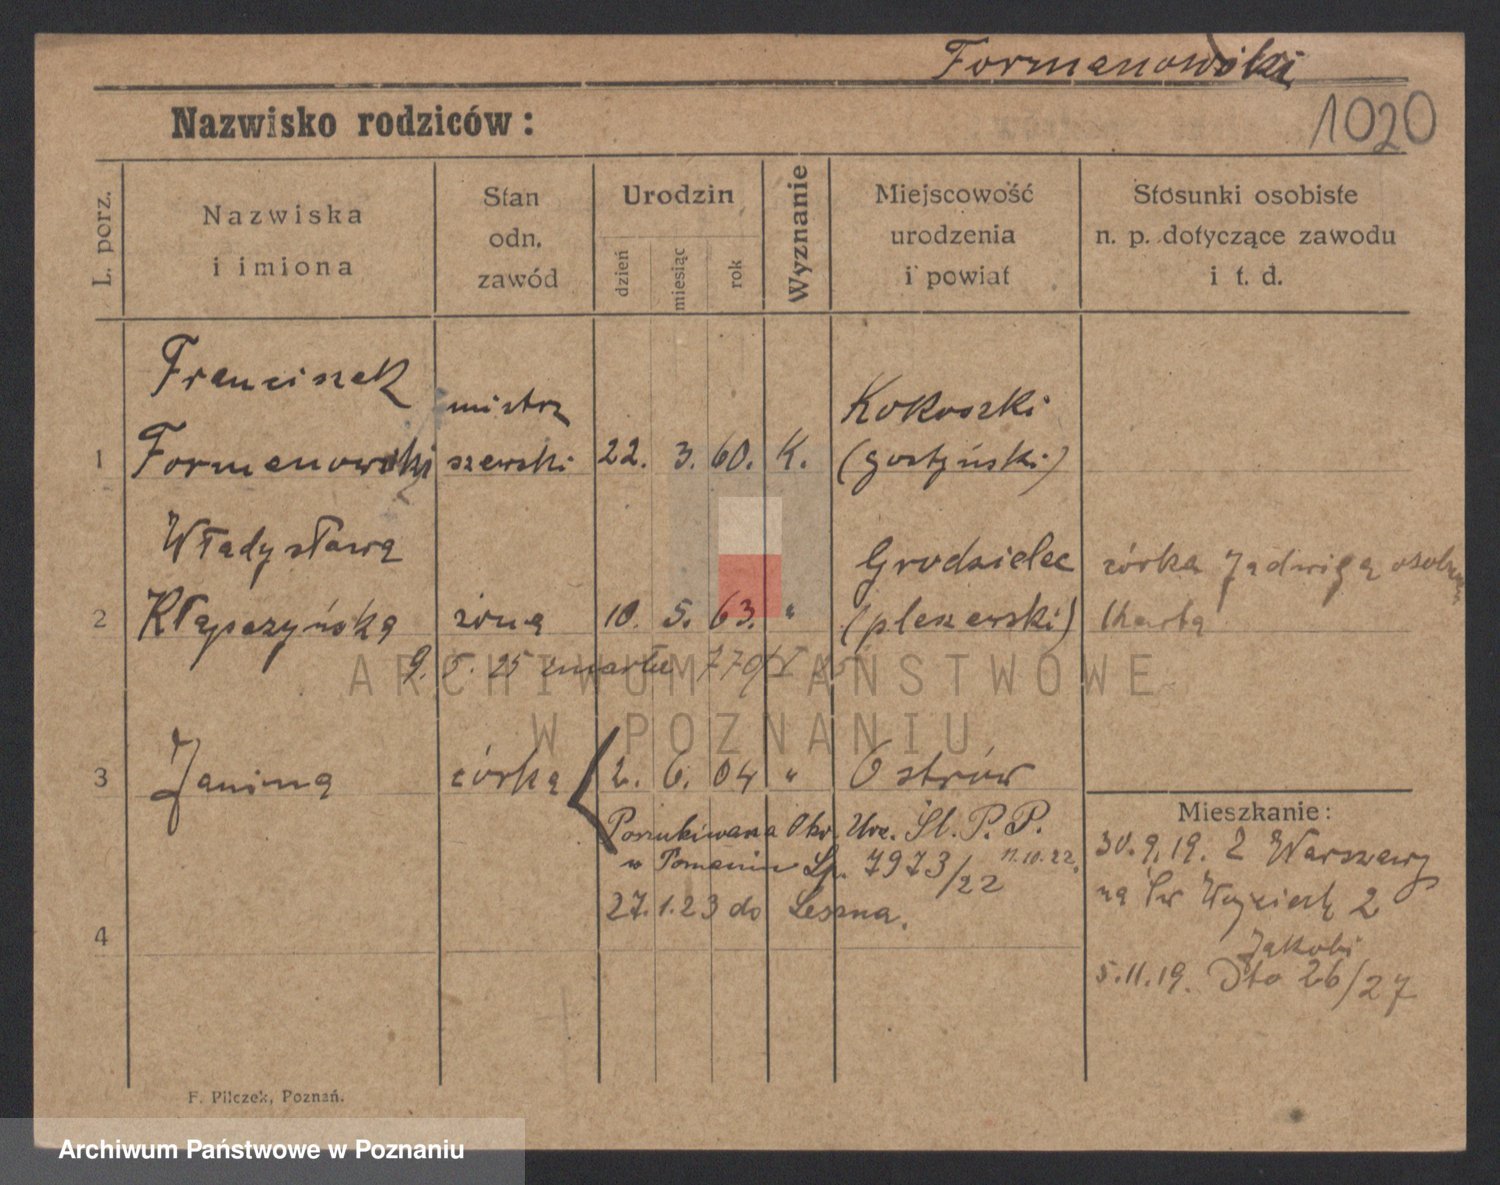 Formanowski
1020
Nazwisko rodziców:
L. porz.
Nazwiska
i imiona
Stan
odn.
zawód
Urodzin
dzień
miesiąc
rok
Wyznanie
Miejscowość
urodzenia
i powiat
Stosunki osobiste
n. p. dotyczące zawodu
i t. d.
Franciszek mistrz Kokoszki
1 Formanowski szewski 22. 3. 60. K. (gostyński)
Władysława Grodzielec córka Jadwiga
2 Kłapczyńska żona 10. 5. 63. " (pleszewski) Karta
9. 5. 25 zmarła
3 Janina córka 2. 6. 04 " Ostrów
Poszukiwana Okr. Śl. P. P.
w Poznaniu Lp. 7973/22 11.10.22.
27. 1. 23 do Leszna.
4
Mieszkanie:
30. 9. 19. Z Warszawy
na Św Wojciech 2
Jakobi
5. 11. 19. Dto 26/27
F. Pilczek, Poznań.
ARCHIWUM PAŃSTWOWE
W POZNANIU
Archiwum Państwowe w Poznaniu